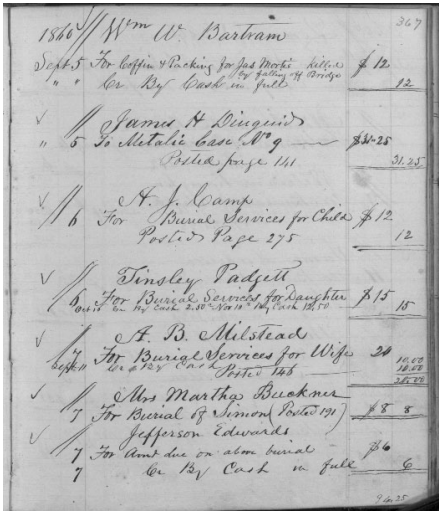 367
1860 Wm W. Bartram
Sept. 5 For Coffin & Packing for Jas Mortie killed $12
by falling off Bridge
" " Cr By Cash in full 12
James H Dinguid
" 5 To Metalic Case No 9 $31.25
Posted page 141 31.25
A. J. Camp
" 6 For Burial Services for Child $12
Posted Page 275 12
Tinsley Padgett
6 For Burial Services for Daughter $15
Oct 10 Cr By Cash 2.50 Nov 10th By Cash 12.50 15
A. B. Milstead
7 For Burial Services for Wife 20
Sept 11 Cr By Cash 10.00
Posted 146 10.00
20.00
Mrs Martha Buckner
7 For Burial of Simon (Posted 191) $8 8
Jefferson Edwards
7 For Amt due on above burial $6
7 Cr By Cash in full 6